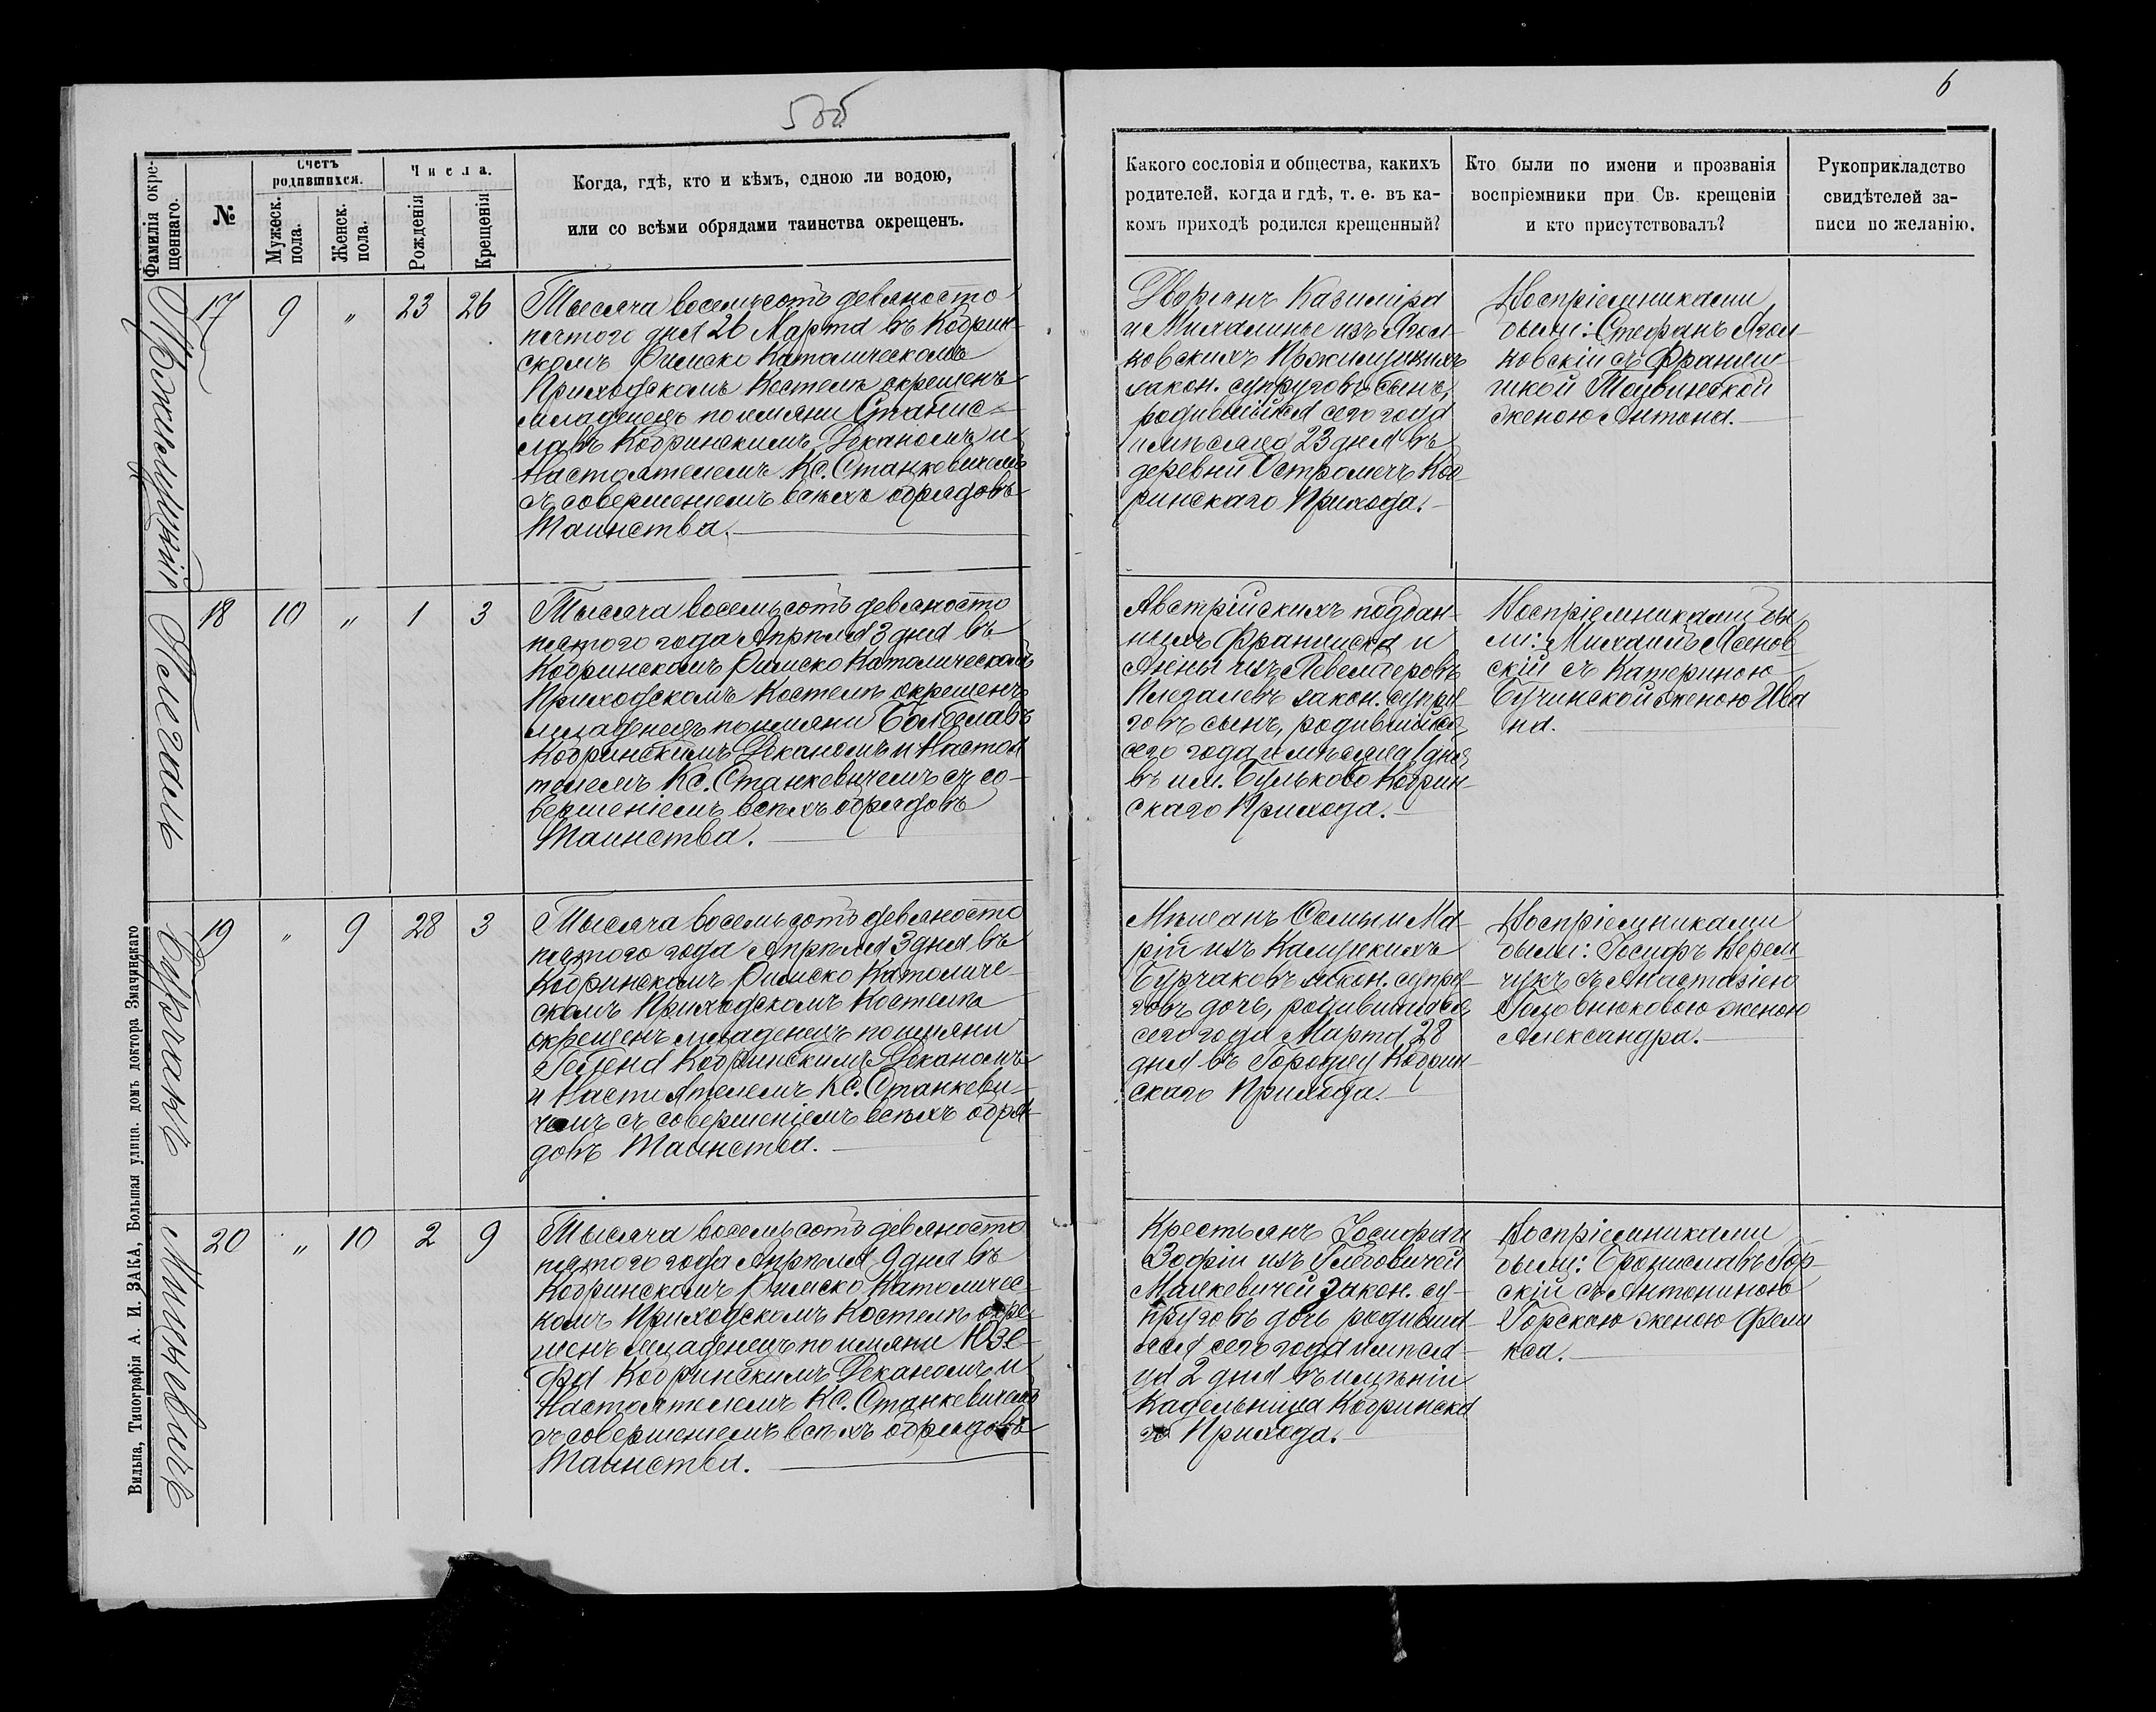 5об
6
Фамилія окре-
щеннаго.
№
Счетъ
родившихся.
Мужеск.
пола.
Женск.
пола.
Числа.
Рожденія
Крещенія
Когда, гдѣ, кто и кѣмъ, одною ли водою,
или со всѣми обрядами таинства окрещенъ.
Какого сословія и общества, какихъ
родителей, когда и гдѣ, т. е. въ ка-
комъ приходѣ родился крещенный?
Кто были по имени и прозванія
воспріемники при Св. крещеніи
и кто присутствовалъ?
Рукоприкладство
свидѣтелей за-
писи по желанію.
17
9
"
23
26
Тысяча восемьсотъ девяносто
пятого дня 26 Марта въ Кобрин-
скомъ Римско Католическомъ
Приходскомъ Костелѣ окрещенъ
младенецъ по имяни Станис-
лавъ Кобринскимъ Деканомъ и
Настоятелемъ Кс. Станкевичемъ
съ совершеніемъ всѣхъ обрядовъ
Таинства.
Дворянъ Казиміра
и Михалины изъ Ягол-
ковскихъ
закон. супруговъ сынъ,
родившійся сего года
и мѣсяца 23 дня въ
деревни Остромечъ Коб-
ринскаго Прихода.
Воспріемниками
были: Стефанъ Ягол
ковскій съ Францис-
шкой
женою Антона.
18
10
"
1
3
Тысяча восемьсотъ девяносто
пятого года Апрѣля 3 дня въ
Кобринскомъ Римско Католическомъ
Приходскомъ Костелѣ окрещенъ
младенецъ по имяни Болеславъ
Кобринскимъ Деканомъ и Настоя
телемъ Кс. Станкевичемъ съ со-
вершеніемъ всѣхъ обрядовъ
Таинства.
Австрійскихъ поддан-
ныхъ Франциска и
Анны изъ
закон. супру-
говъ сынъ, родившійся
сего года и мѣсяца 1 дня
въ им. Бульково Кобрин-
скаго Прихода.
Воспріемниками бы
ли: Михаилъ Ясенов
скій съ Катериною
Бучинской женою Ива
на.
Бурчакъ
19
"
9
28
3
Тысяча восемьсотъ девяносто
пятого года Апрѣля 3 дня въ
Кобринскомъ Римско Католиче-
скомъ Приходскомъ Костелѣ
окрещенъ младенецъ по имяни
Гелена Кобринскимъ Деканомъ
и Настоятелемъ Кс. Станкеви-
чемъ съ совершеніемъ всѣхъ обря-
довъ Таинства.
Мѣщанъ Осипы и Ма-
рій изъ Калуцкихъ
Бурчаковъ закон. супру-
говъ дочь, родившаяся
сего года Марта 28
дня въ Городцу Кобрин-
скаго Прихода.
Воспріемниками
были: Іосифъ Верем
чукъ съ Анастазіею
Головнюковою женою
Александра.
20
"
10
2
9
Тысяча восемьсотъ девяносто
пятого года Апрѣля 9 дня въ
Кобринскомъ Римско Католичес-
комъ Приходскомъ Костелѣ окре-
щенъ младенецъ по имяни Юзе-
фа Кобринскимъ Деканомъ и
Настоятелемъ Кс. Станкевичемъ
съ совершеніемъ всѣхъ обрядовъ
Таинства.
Крестьянъ Іосифа и
Зофіи изъ
закон. су-
пруговъ дочь родивша-
яся сего года и мѣся-
ца 2 дня въ имѣніи
Кадельница Кобринска
го Прихода.
Воспріемниками
были: Брониславъ Гор-
скій съ Антониною
Горскою женою Фели
кса.
Вильна, Типографія А. И. ЗАКА, Большая улица. домъ доктора Змачинскаго